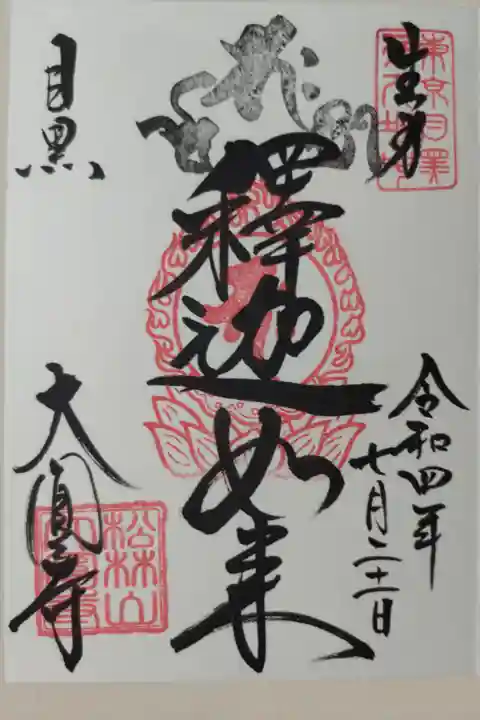 生身
東京目黒
釋迦如来
令和四年
七月二十一日
目黒
大圓寺
松林山